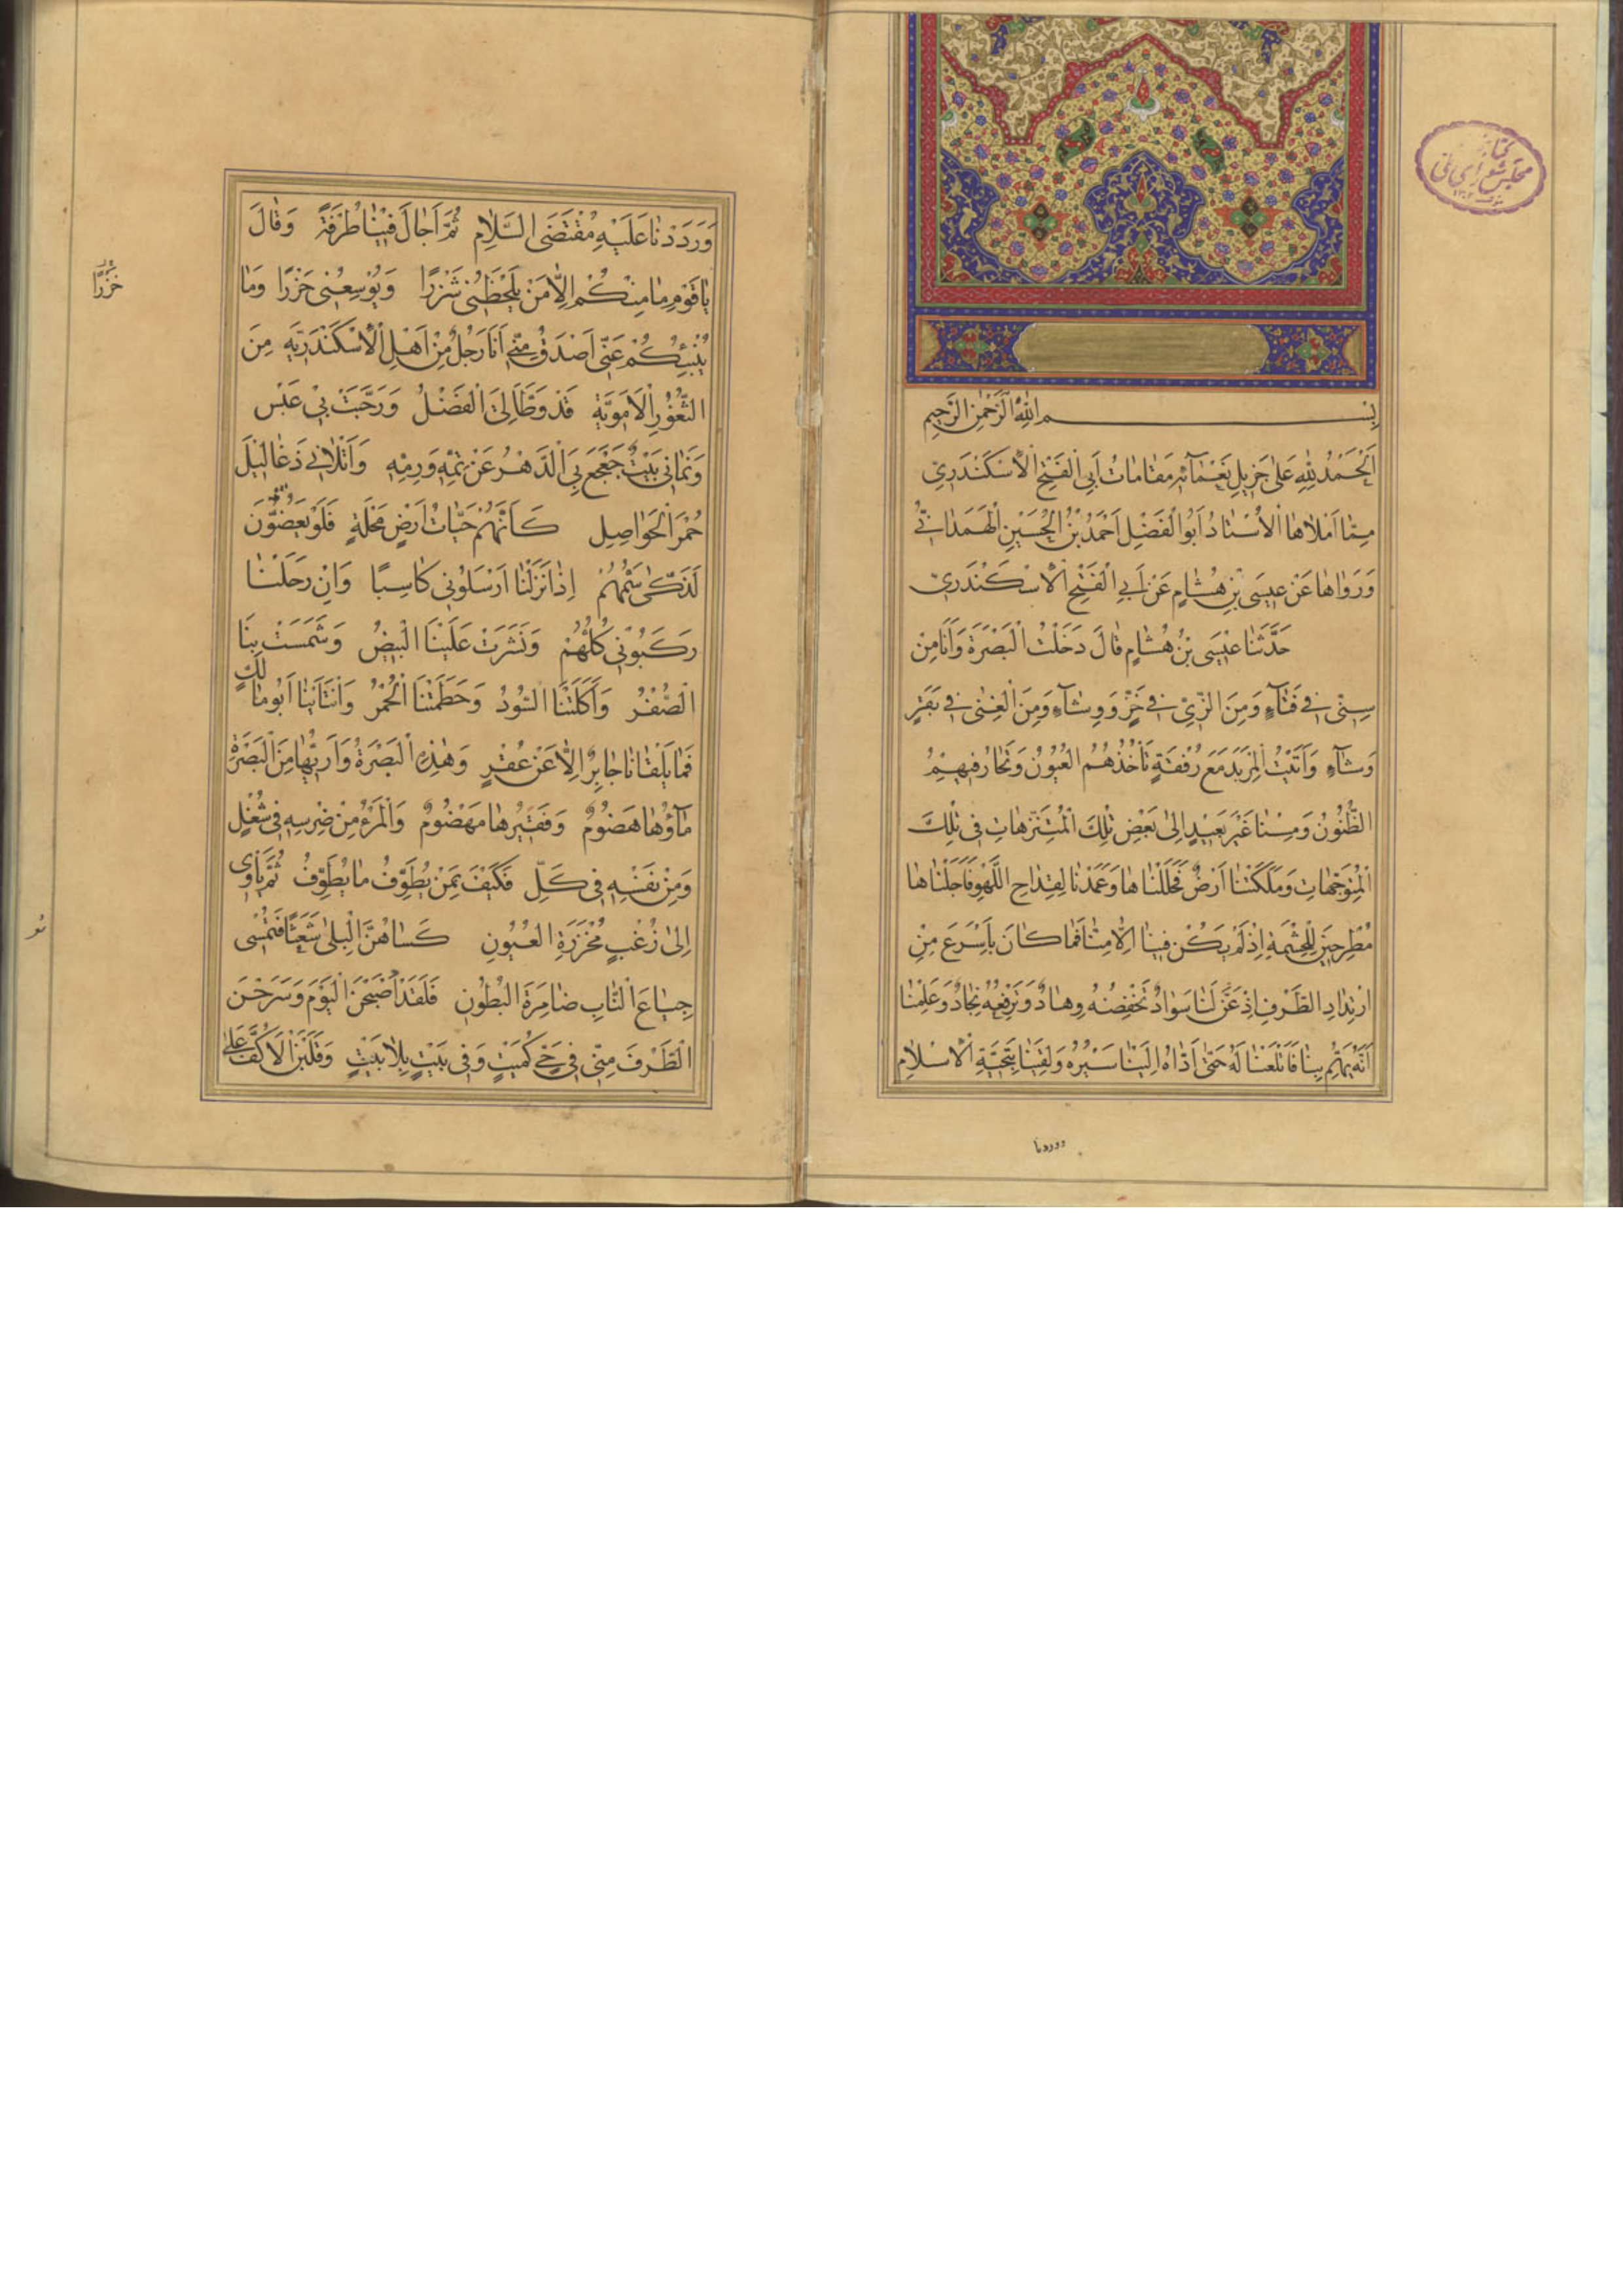 بِسْمِ اللهِ الرَّحْمٰنِ الرَّحِيمِ
اَلْحَمْدُ لِلّٰهِ عَلىٰ جَزِيلِ نَعْمَآئِهِ مَقٰامٰاتُ أَبِي الْفَتْحِ الْاِسْكَنْدَرِيِّ
مِمّٰا اَمْلاٰهَا الْاُسْتٰادُ اَبُوالْفَضْلِ اَحْمَدُ بْنُ الْحُسَيْنِ الْهَمَدٰانِيُّ
وَرَوٰاهٰا عَنْ عِيسَى بْنِ هُشٰامٍ عَنْ اَبِي الْفَتْحِ الْاِسْكَنْدَرِيِّ
حَدَّثَنٰا عِيْسَى بْنُ هُشٰامٍ قٰالَ دَخَلْتُ الْبَصْرَةَ وَاَنَا مِنْ
سِنّٖى فٖي فَتٰآءٍ وَمِنَ الزِّيِّ فٖي خَزٍّ وَوِشٰآءٍ وَمِنَ الْغِنٰى فٖي بَقَرٍ
وَشٰآءٍ وَاَتَيْتُ الْمِرْبَدَ مَعَ رُفْقَةٍ تَأْخُذُهُمُ الْعُيُونُ وَتَحٰارُ فٖيهِمُ
الظُّنُوُنُ وَمِسْنٰا غَيْرَ بَعٖيدٍ اِلىٰ بَعْضِ تِلْكَ الْمُتَنَزَّهٰاتِ فٖي تِلْكَ
الْمُتَوَجَّهٰاتِ وَمَلَكَتْنٰا اَرْضٌ فَحَلَلْنٰاهٰا وَعَمَدْنٰا لِقِدٰاحِ اللَّهْوِ فَاَجَلْنٰاهٰا
مُطَّرِحٖينَ لِلْحِشْمَةِ اِذْ لَمْ يَكُنْ فٖينٰا اِلّٰا مِنّٰا فَمٰا كٰانَ بِاَسْرَعَ مِنِ
ارْتِدٰادِ الطَّرْفِ اِذْ عَنَّ لَنٰا سَوٰادٌ تَخْفِضُهُ وِهٰادٌ وَتَرْفَعُهُ نِجٰادٌ وَعَلِمْنٰا
اَنَّهُ يَهُمُّ بِنٰا فَاَتْلَعْنٰا لَهُ حَتّٰى اَدّٰاهُ اِلَيْنٰا سَيْرُهُ وَلَقِيَنٰا بِتَحِيَّةِ الْاِسْلاٰمِ
ووردنا
وَرَدَدْنٰا عَلَيْهِ مُقْتَضَى السَّلاٰمِ ثُمَّ اَجٰالَ فٖينٰا طَرْفَهُ وَقٰالَ
يٰا قَوْمِ مٰا مِنْكُمْ اِلّٰا مَنْ يَلْحَظُنٖي شَزْرًا وَيُوْسِعُنٖي حَزْرًا وَمٰا
خَزْرًا
يُنْبِئُكُمْ عَنّٖى اَصْدَقُ مِنّٖي اَنَا رَجُلٌ مِنْ اَهْلِ الْاِسْكَنْدَرِيَّةِ مِنَ
الثُّغُوْرِ الْاُمَوِيَّةِ قَدْ وَطَّأَ لِيَ الْفَضْلُ وَرَحَّبَتْ بٖي عَبْسٌ
وَنَمٰانٖي بَيْتٌ جَعْجَعَ بِيَ الدَّهْرُ عَنْ ثَمِّهِ وَرَمِّهِ وَاَتْلاٰنٖي زَغٰالٖيلَ
حُمْرَ الْحَوٰاصِلِ كَاَنَّهُمْ حَيّٰاتُ اَرْضٍ مَحْلَةٍ فَلَوْ يَعَضُّوْنَ
لَذَكّٰى سَمُّهُمْ اِذٰا نَزَلْنٰا اَرْسَلُوْنٖي كٰاسِبًا وَاِنْ رَحَلْنٰا
رَكِبُوْنٖي كُلُّهُمْ وَنَشَزَتْ عَلَيْنَا الْبٖيضُ وَشَمَسَتْ بِنَا
الصُّفْرُ وَاَكَلَتْنَا السُّوْدُ وَحَطَمَتْنَا الْحُمْرُ وَانْتٰابَنٰا اَبُو مٰالِكٍ
فَمٰا يَلْقٰانٰا جٰابِرٌ اِلّٰا عَنْ عُفْرٍ وَهٰذِهِ الْبَصْرَةُ وَاَرَبُّهٰا مِنَ الْبَصْرَةِ
مٰآؤُهٰا هَضُوْمٌ وَفَقٖيْرُهٰا مَهْضُوْمٌ وَالْمَرْءُ مِنْ ضِرْسِهِ فٖي شُغْلٍ
وَمِنْ نَفْسِهِ فٖي كَلٍّ فَكَيْفَ بِمَنْ يُطَوِّفُ مٰا يُطَوِّفُ ثُمَّ يَأْوٖي
اِلىٰ زُغْبٍ مُحَزَّرَةِ الْعُيُوْنِ كَسٰاهُنَّ الْبِلىٰ شَعَثًا فَتُمْسٖي
جِيٰاعَ النّٰابِ ضٰامِرَةَ الْبُطُوْنِ فَلَقَدْ اَصْبَحْنَ الْيَوْمَ وَسَرَحْنَ
الطَّرْفَ مِنّٖي فٖي حَيٍّ كَمَيْتٍ وَفٖي بَيْتٍ بِلاٰ بَيْتٍ وَقَلَبْنَ الْاَكُفَّ عَلىٰ